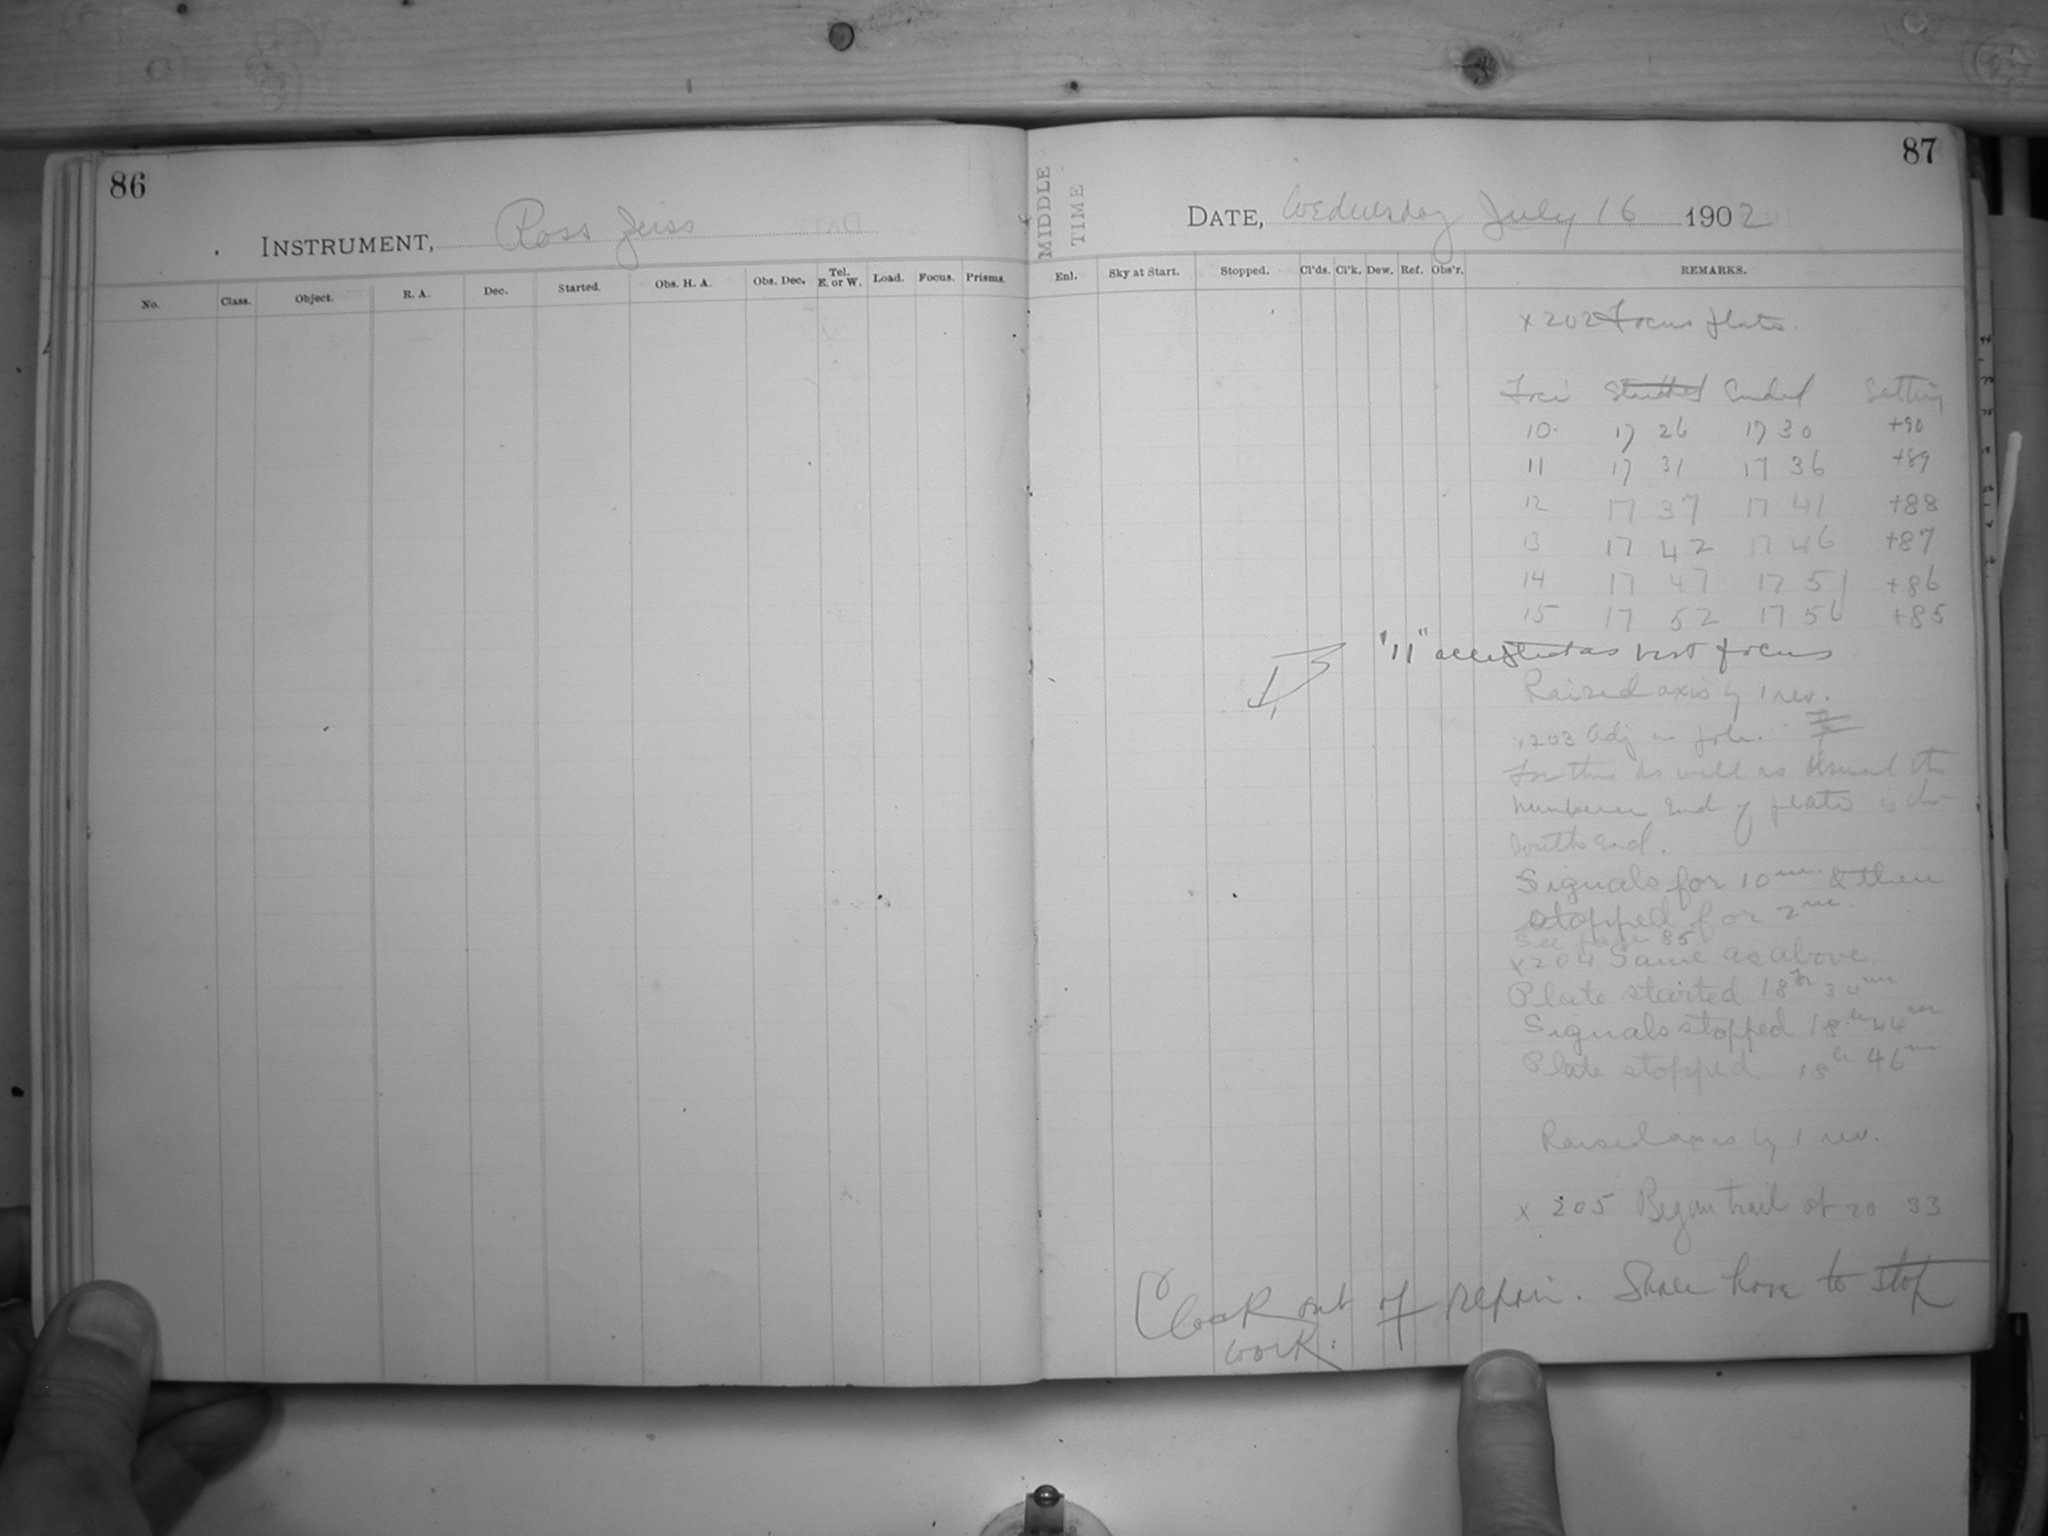 86
INSTRUMENT, Ross Zeiss
No. Class. Object. R. A. Dec. Started. Obs. H. A. Obs. Dec. Tel. E. or W. Load. Focus. Prisms.
87
MIDDLE
TIME
DATE, Wednesday July 16 1902
Enl. Sky at Start. Stopped. Cl'ds. Cl'k. Dew. Ref. Obs'r. REMARKS.
x 202 Focus plate.
Foci Started Ended Setting
10 17 26 17 30 +90
11 17 31 17 36 +89
12 17 37 17 41 +88
13 17 42 17 46 +87
14 17 47 17 51 +86
15 17 52 17 56 +85
"11" accepted as best focus
Raised axis by 1 rev.
x203 Adj on pole.
For this as well as usual the
number end of plate is the
south end.
Signals for 10m & then
stopped for 2m.
See page 85
x204 Same as above.
Plate started 18h 30m
Signals stopped 18h 44m
Plate stopped 18h 46m
Raised axis by 1 rev.
x 205 Began trail at 20 33
Clock out of repair. Shall have to stop
work.